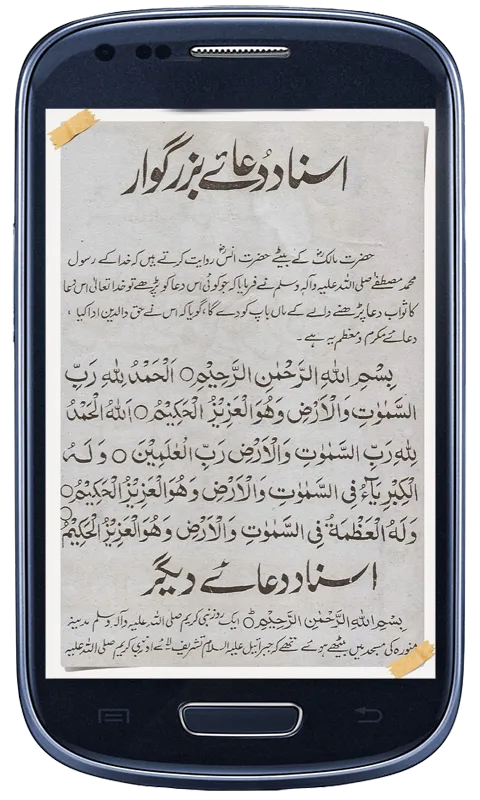 اسناد دُعائے بزرگوار
حضرت مالکؓ کے بیٹے حضرت انسؓ روایت کرتے ہیں کہ خدا کے رسول
محمد مصطفےٰ صلی اللہ علیہ وآلہ وسلم نے فرمایا کہ جو کوئی اس دعا کو پڑھے تو خدا تعالیٰ اس دعا
کا ثواب دعا پڑھنے والے کے ماں باپ کو دے گا، گویا کہ اس نے حق والدین ادا کیا ،
دعائے مکرم و معظم یہ ہے ۔
بِسْمِ اللّٰهِ الرَّحْمٰنِ الرَّحِیْمِ○ اَلْحَمْدُ لِلّٰهِ رَبِّ
السَّمٰوٰتِ وَالْاَرْضِ وَهُوَ الْعَزِیْزُ الْحَکِیْمُ○ اَللّٰهُ الْحَمْدُ
لِلّٰهِ رَبِّ السَّمٰوٰتِ وَالْاَرْضِ رَبِّ الْعٰلَمِیْنَ ○ وَلَهُ
الْکِبْرِیَآءُ فِی السَّمٰوٰتِ وَالْاَرْضِ وَهُوَ الْعَزِیْزُ الْحَکِیْمُ○
وَلَهُ الْعَظْمَةُ فِی السَّمٰوٰتِ وَالْاَرْضِ وَهُوَ الْعَزِیْزُ الْحَکِیْمُ○
اسناد دعائے دیگر
بِسْمِ اللّٰهِ الرَّحْمٰنِ الرَّحِیْمِ○ ایک روز نبی کریم صلی اللہ علیہ وآلہ وسلم مدینہ
منورہ کی مسجد میں بیٹھے ہوئے تھے کہ جبرائیل علیہ السلام تشریف لائے اور نبی کریم صلی اللہ علیہ